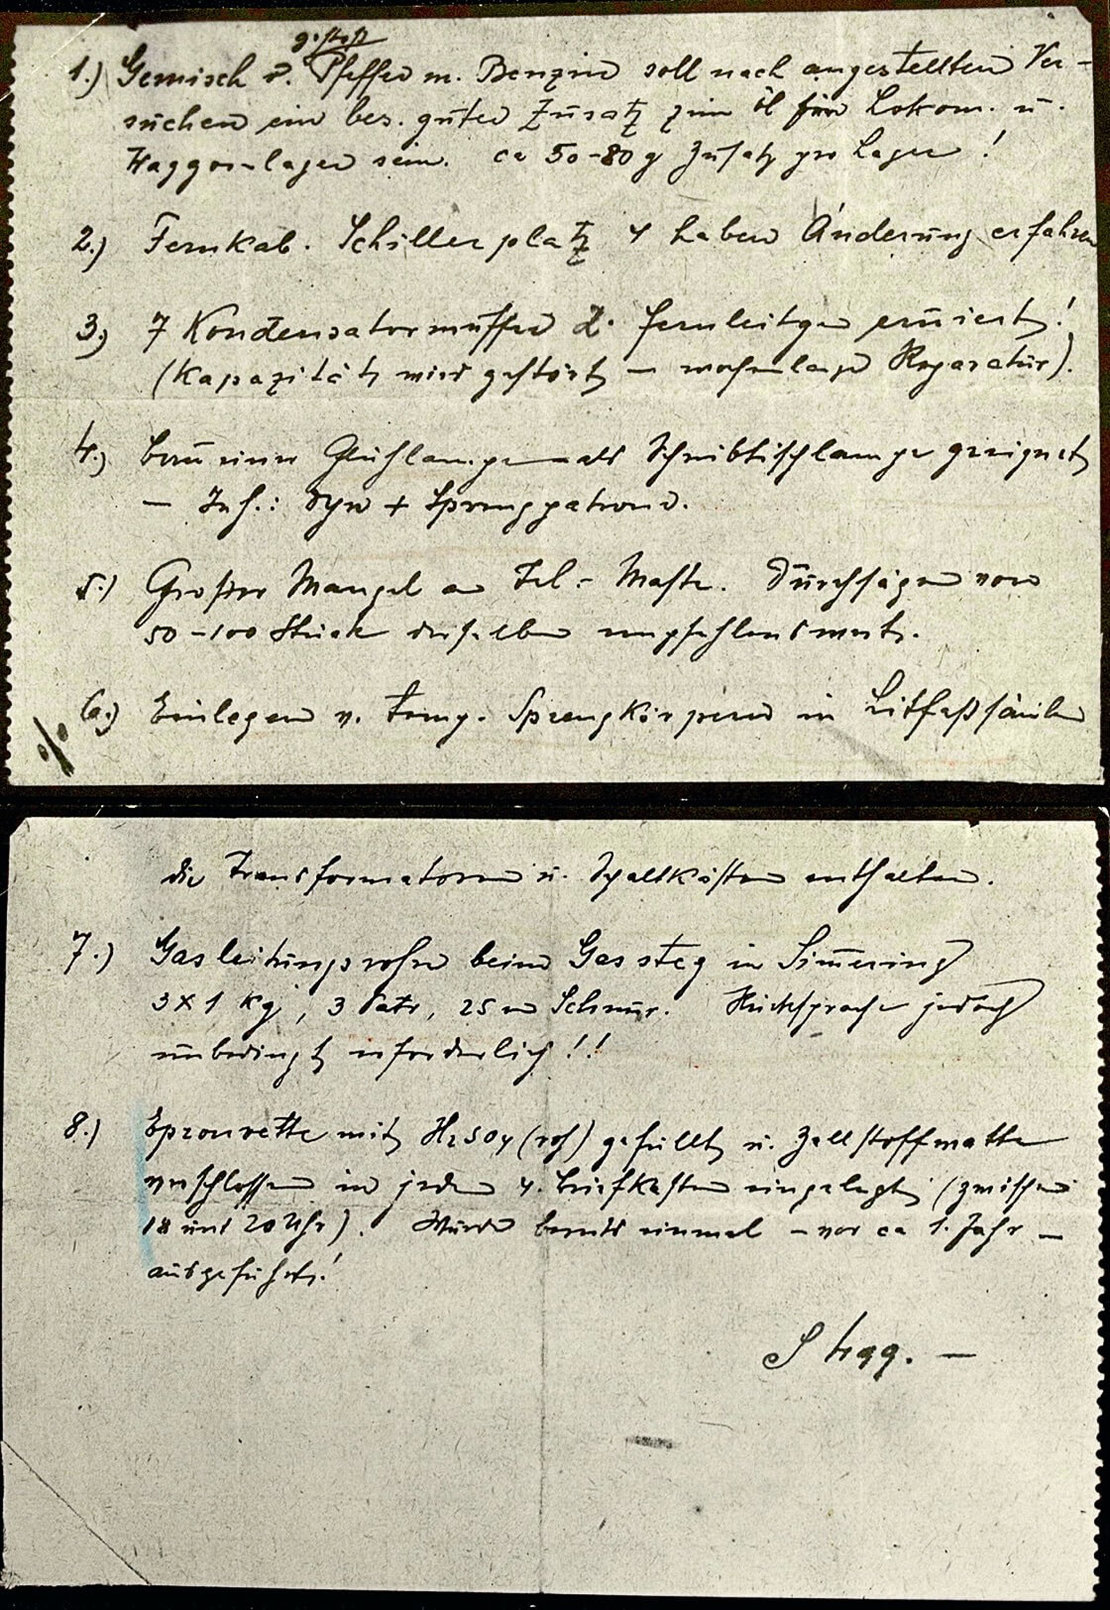 gestoß.
1.) Gemisch v. Pfeffer m. Benzin soll nach angestellten Ver-
suchen ein bes. guter Zusatz zum Öl für Lokom. u.
Waggonlager sein. ca 50-80 g Zusatz pro Lager!
2.) Fernkab. Schillerplatz 4 haben Änderung erfahren
3.) 7 Kondensatormuffen d. Fernleitgen eruiert!
(Kapazität wird gestört – wochenlange Reparatur).
4.) Bau einer Glühlampe – als Schreibtischlampe geeignet
– Inh.: Dyn + Sprengpatrone.
5.) Großer Mangel an Tel.-Maste. Durchsägen von
50-100 Stück derselben empfehlenswert.
6.) Einlegen v. temp. Sprengkörpern in Litfaßsäulen
%
die Transformatoren u. Schaltkästen enthalten.
7.) Gasleitungsrohre beim Gassteg in Simmering
3x1 kg, 3 Patr, 25 m Schnur. Rücksprache jedoch
unbedingt erforderlich!!
8.) Eprouvette mit H2SO4 (roh) gefüllt u. Zellstoffwatte
verschlossen in jeden 4. Briefkasten eingelegt (zwischen
18 und 20 Uhr). Wurde bereits einmal – vor ca 1. Jahr –
ausgeführt!